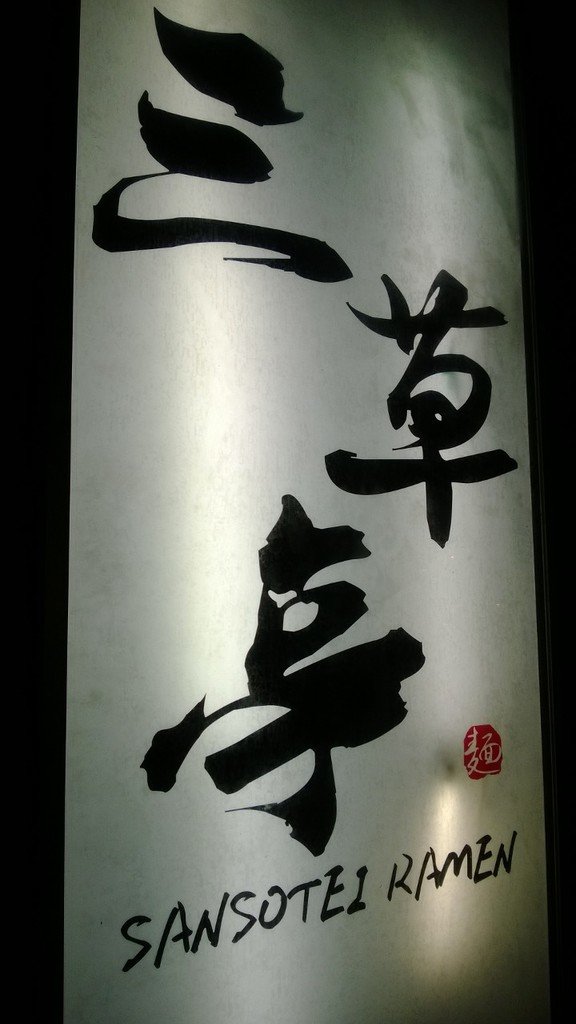 三草亭
麺
SANSOTEI RAMEN